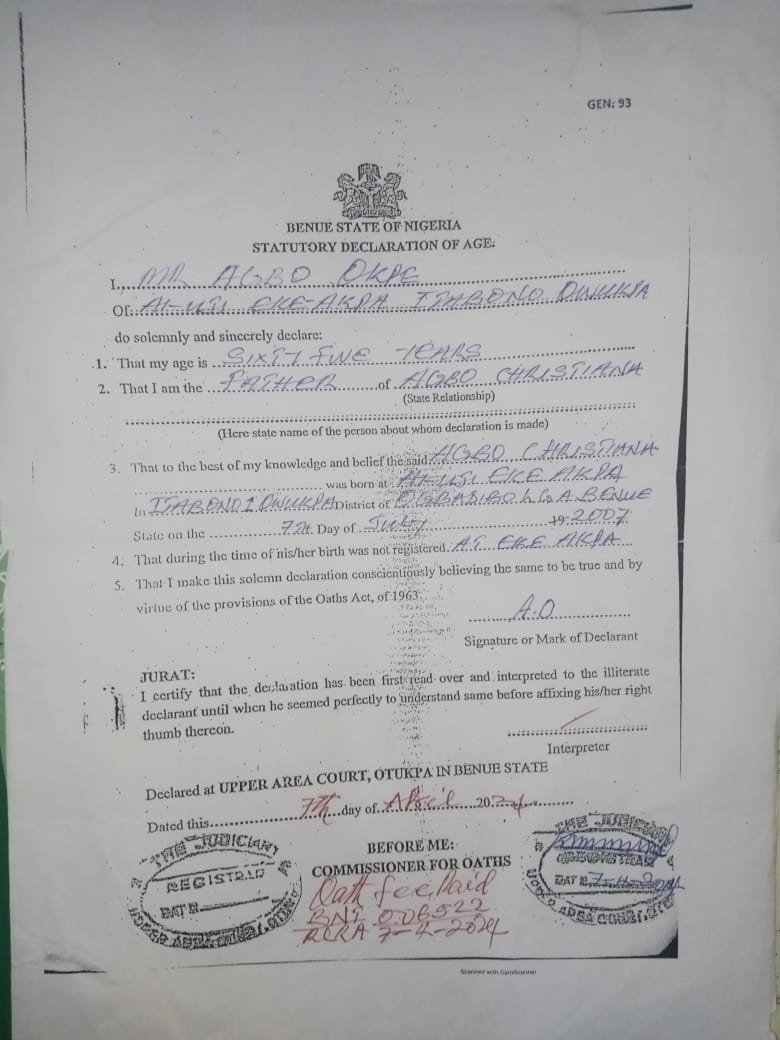 GEN: 93
BENUE STATE OF NIGERIA
STATUTORY DECLARATION OF AGE:
I, MR AGBO OKPE
Of AI-USI EKE-AKPA ITABONO OWUKPA
do solemnly and sincerely declare:
1. That my age is SIXTY FIVE YEARS
2. That I am the FATHER of AGBO CHRISTIANA
(State Relationship)
(Here state name of the person about whom declaration is made)
3. That to the best of my knowledge and belief the said AGBO CHRISTIANA
was born at AI-USI EKE AKPA
In ITABONO I OWUKPA District of OGBADIBO L.G.A BENUE
State on the 7th Day of July 19 2007
4. That during the time of his/her birth was not registered AT EKE AKPA
5. That I make this solemn declaration conscientiously believing the same to be true and by
virtue of the provisions of the Oaths Act, of 1963
A.O
Signature or Mark of Declarant
JURAT:
I certify that the declaration has been first read over and interpreted to the illiterate
declarant until when he seemed perfectly to understand same before affixing his/her right
thumb thereon.
Interpreter
Declared at UPPER AREA COURT, OTUKPA IN BENUE STATE
Dated this 7th day of April 2024
BEFORE ME:
COMMISSIONER FOR OATHS
Oath fee Paid
BNI 006522
RCRA 7-4-2024
THE JUDICIARY
REGISTRAR
DATE
UPPER AREA COURT
THE JUDICIARY
REGISTRAR
DATE
UPPER AREA COURT
Scanned with CamScanner